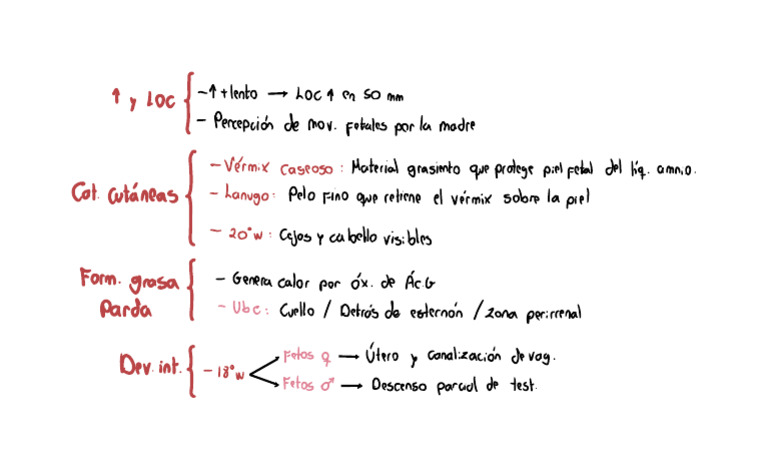 ↑ y LOC
- ↑ + lento → LOC ↑ en 50 mm
- Percepción de mov. fetales por la madre
Cat. cutáneas
- Vérmix caseoso : Material grasiento que protege piel fetal del líq. amnio.
- Lanugo : Pelo fino que retiene el vérmix sobre la piel
- 20°w : Cejas y cabello visibles
Form. grasa
Parda
- Genera calor por óx. de Ác.G
- Ubc : Cuello / Detrás de esternón / zona perirrenal
Dev. int.
- 18°w
Fetos ♀ → Útero y canalización de vag.
Fetos ♂ → Descenso parcial de test.